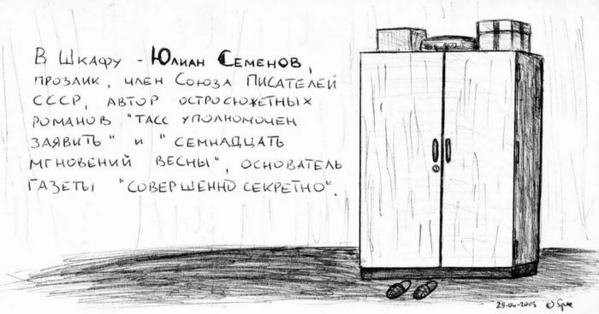 В Шкафу - Юлиан Семенов,
прозаик, член Союза Писателей
СССР, автор остросюжетных
романов "ТАСС уполномочен
заявить" и "Семнадцать
мгновений весны", основатель
газеты "Совершенно секретно".